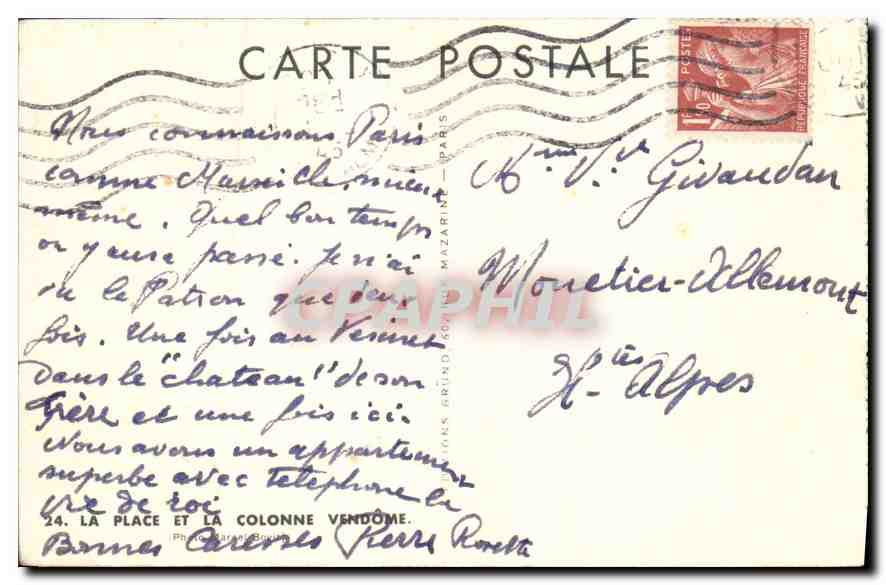 CARTE POSTALE
POSTES
1F50
REPUBLIQUE FRANÇAISE
Nous connaissons Paris
comme Marseille, mieux
même. Quel bon temps
on y aura passé. Je n'ai
vu le Patron que deux
fois. Une fois au Vesinet
dans le "chateau" de son
frère et une fois ici.
Nous avons un appartement
superbe avec telephone la
vie de roi
24. LA PLACE ET LA COLONNE VENDOME.
Bonnes Caresses Pierre Rosette
EDITIONS GRUND, 60, RUE MAZARINE — PARIS
Mme Vve Givaudan
Monetier-Allemont
Htes Alpes
CPAPHIL